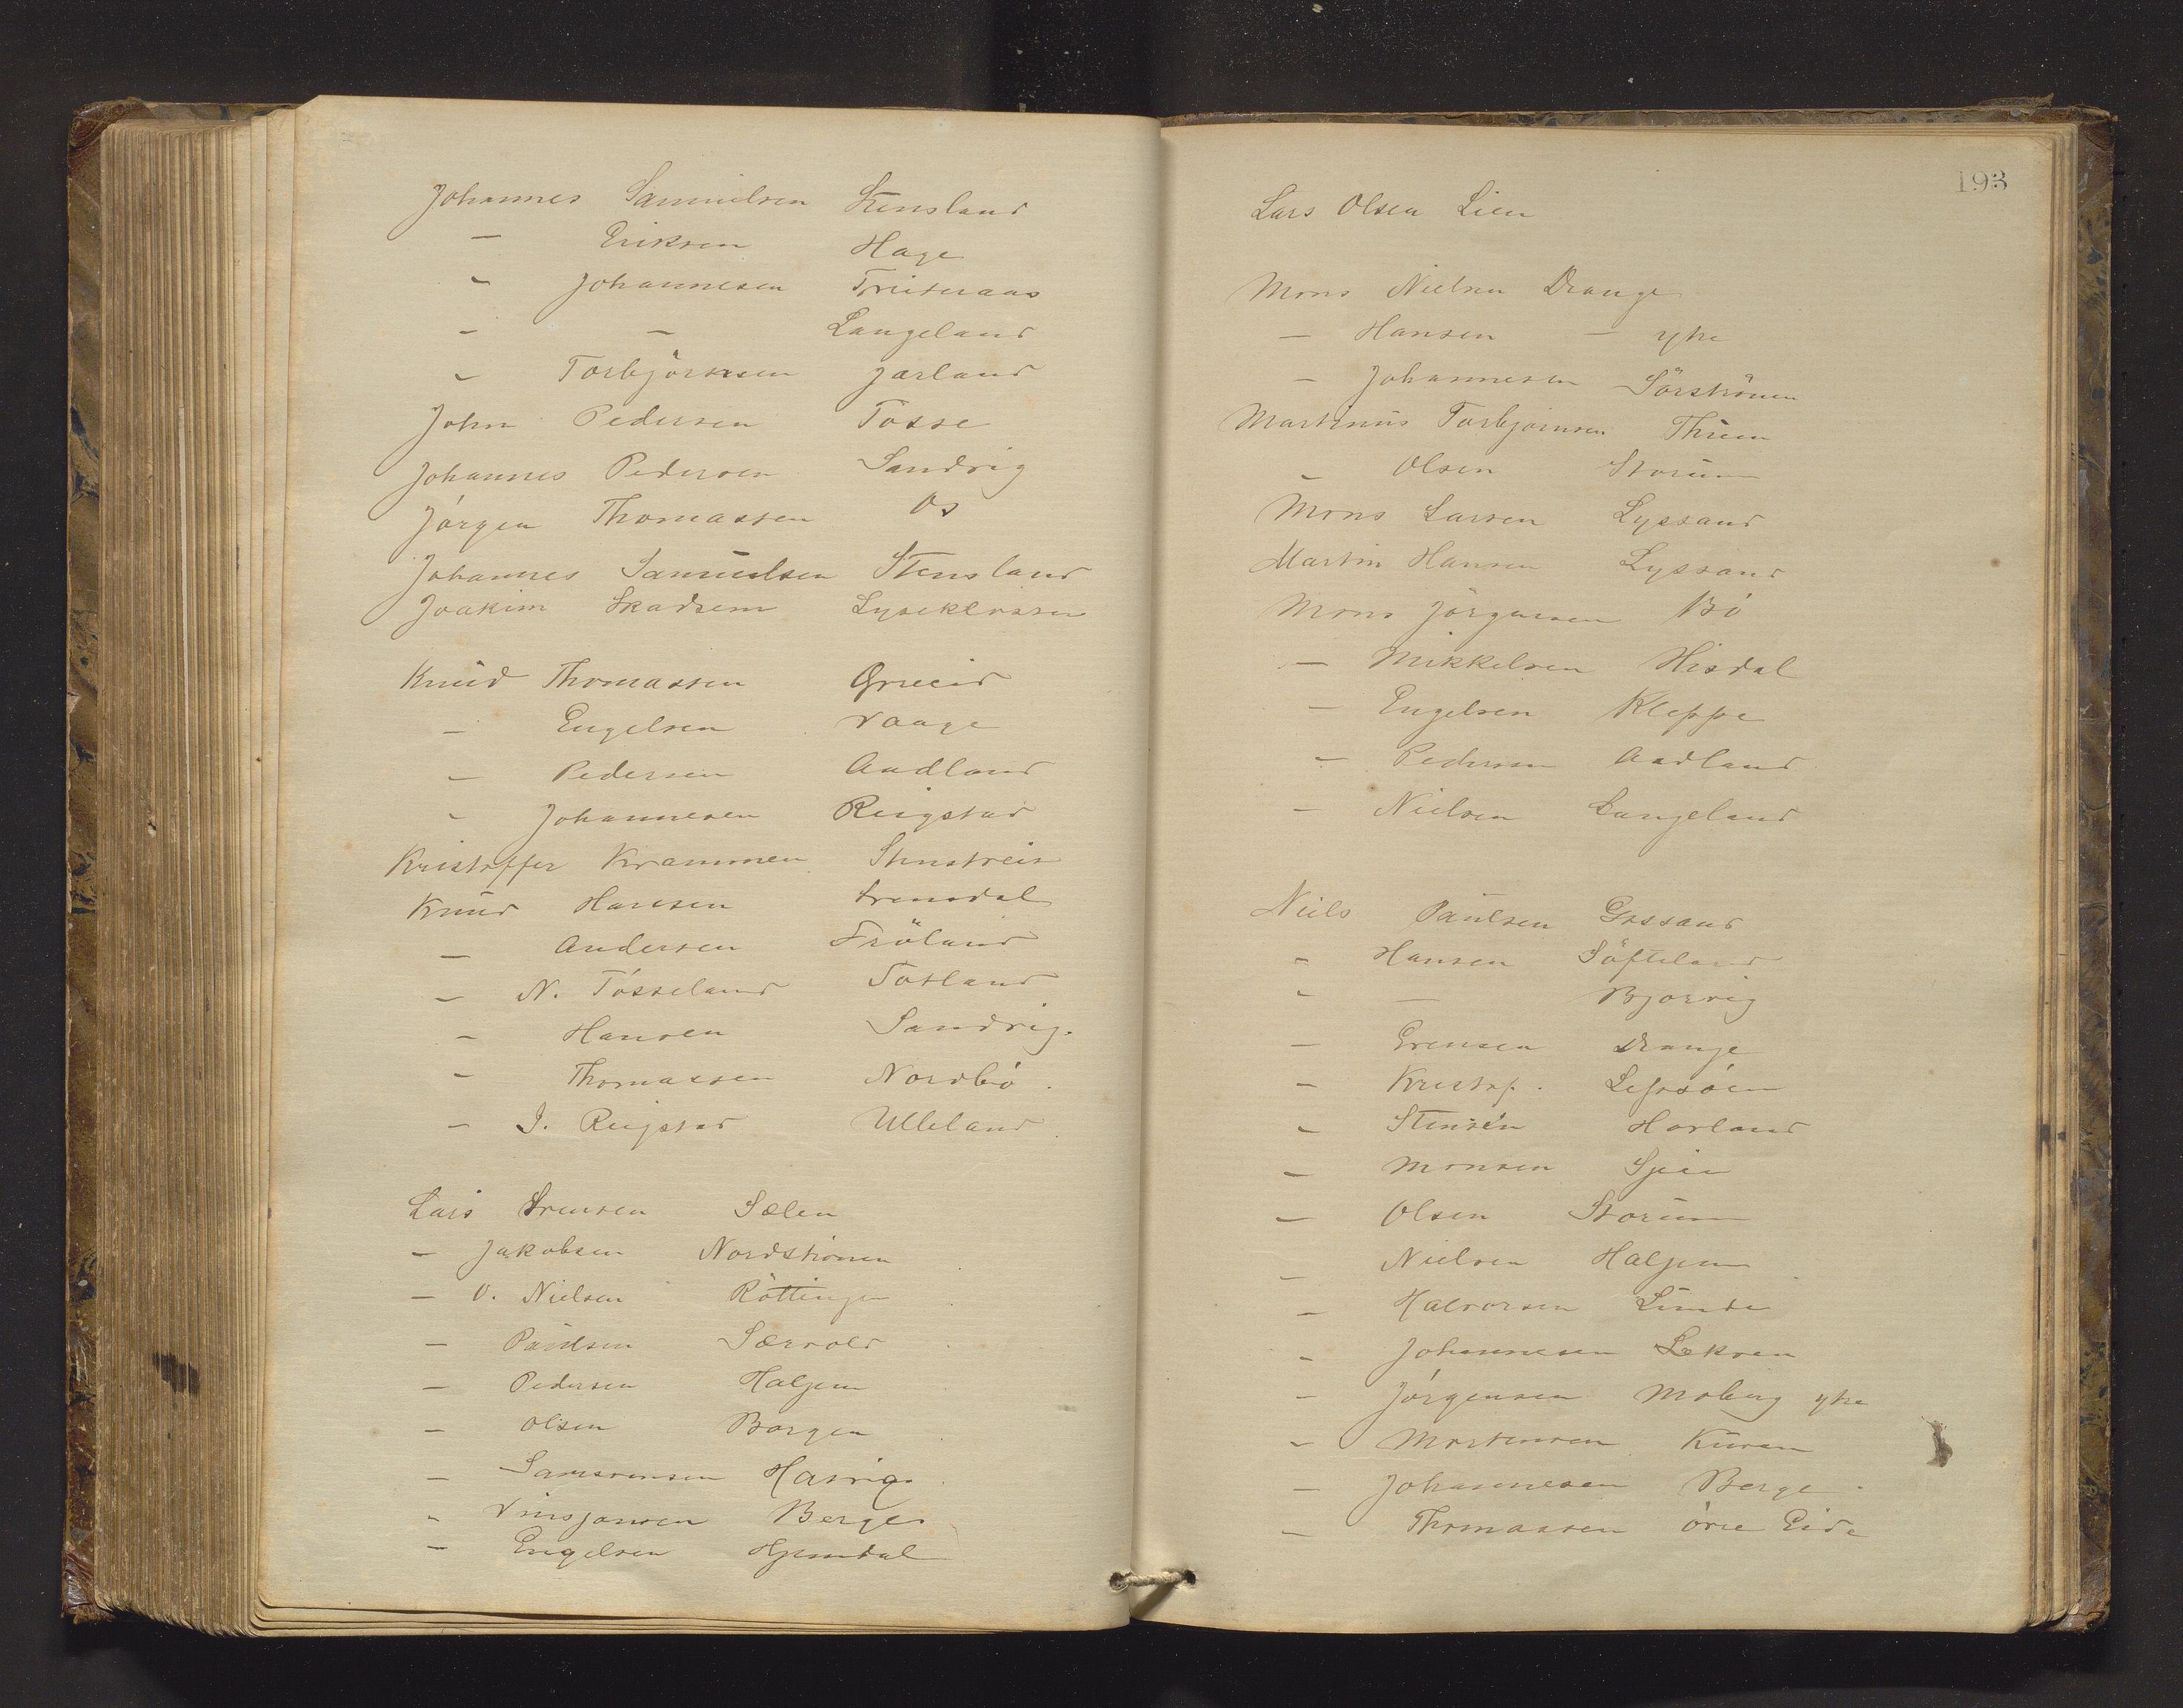 Johannes Samuelsen Stensland
— Eriksen Hage
— Johannesen
— — Langeland
— Torbjörnsen Jarland
John Pedersen Tösse
Johannes Pedersen Sandvig
Jörgen Thomassen Os
Johannes Samuelsen Stensland
Joakim Skadsem Lyseklosser
Knud Thomassen
— Engelsen Vaage
— Pedersen Aadland
— Johannesen Reigstad
Kristoffer
Knud Hansen
— Andersen Fröland
— N. Tösseland Totland
— Hansen Sandvig.
— Thomassen Nordbö.
— J. Reigstad Ulleland
Lars Sælen
— Jakobsen Nordströnen
— O. Nielsen Röttingen
— Paulsen Særvold
— Pedersen Haljem
— Olsen Borgen
— Samsonsen Hasvig.
— Vinsjansen Berge
— Engelsen Hjemdal
193
Lars Olsen Lien
Mons Nielsen Drange
— Hansen — ytre
— Johannesen Sörströnen
Martinus Torbjörnsen Thuen
— Olsen Storum
Mons Larsen Lyssand
Martin Hansen Lyssand
Mons Jörgensen Bö
— Mikkelsen Hisdal
— Engelsen Kleppe
— Pedersen Aadland
— Nielsen Langeland
Niels Paulsen Gåssand
— Hansen Söfteland
— — Bjorvig
— Drange
— Kristof. Lepsöen
— Stensen Havland
— Monsen
— Olsen Storum
— Nielsen Haljem
— Halvorsen Lunde
— Johannesen Lekven
— Jörgensen Moberg ytre
— Mortensen Kuven
— Johannesen Berge
— Thomassen övre Eide